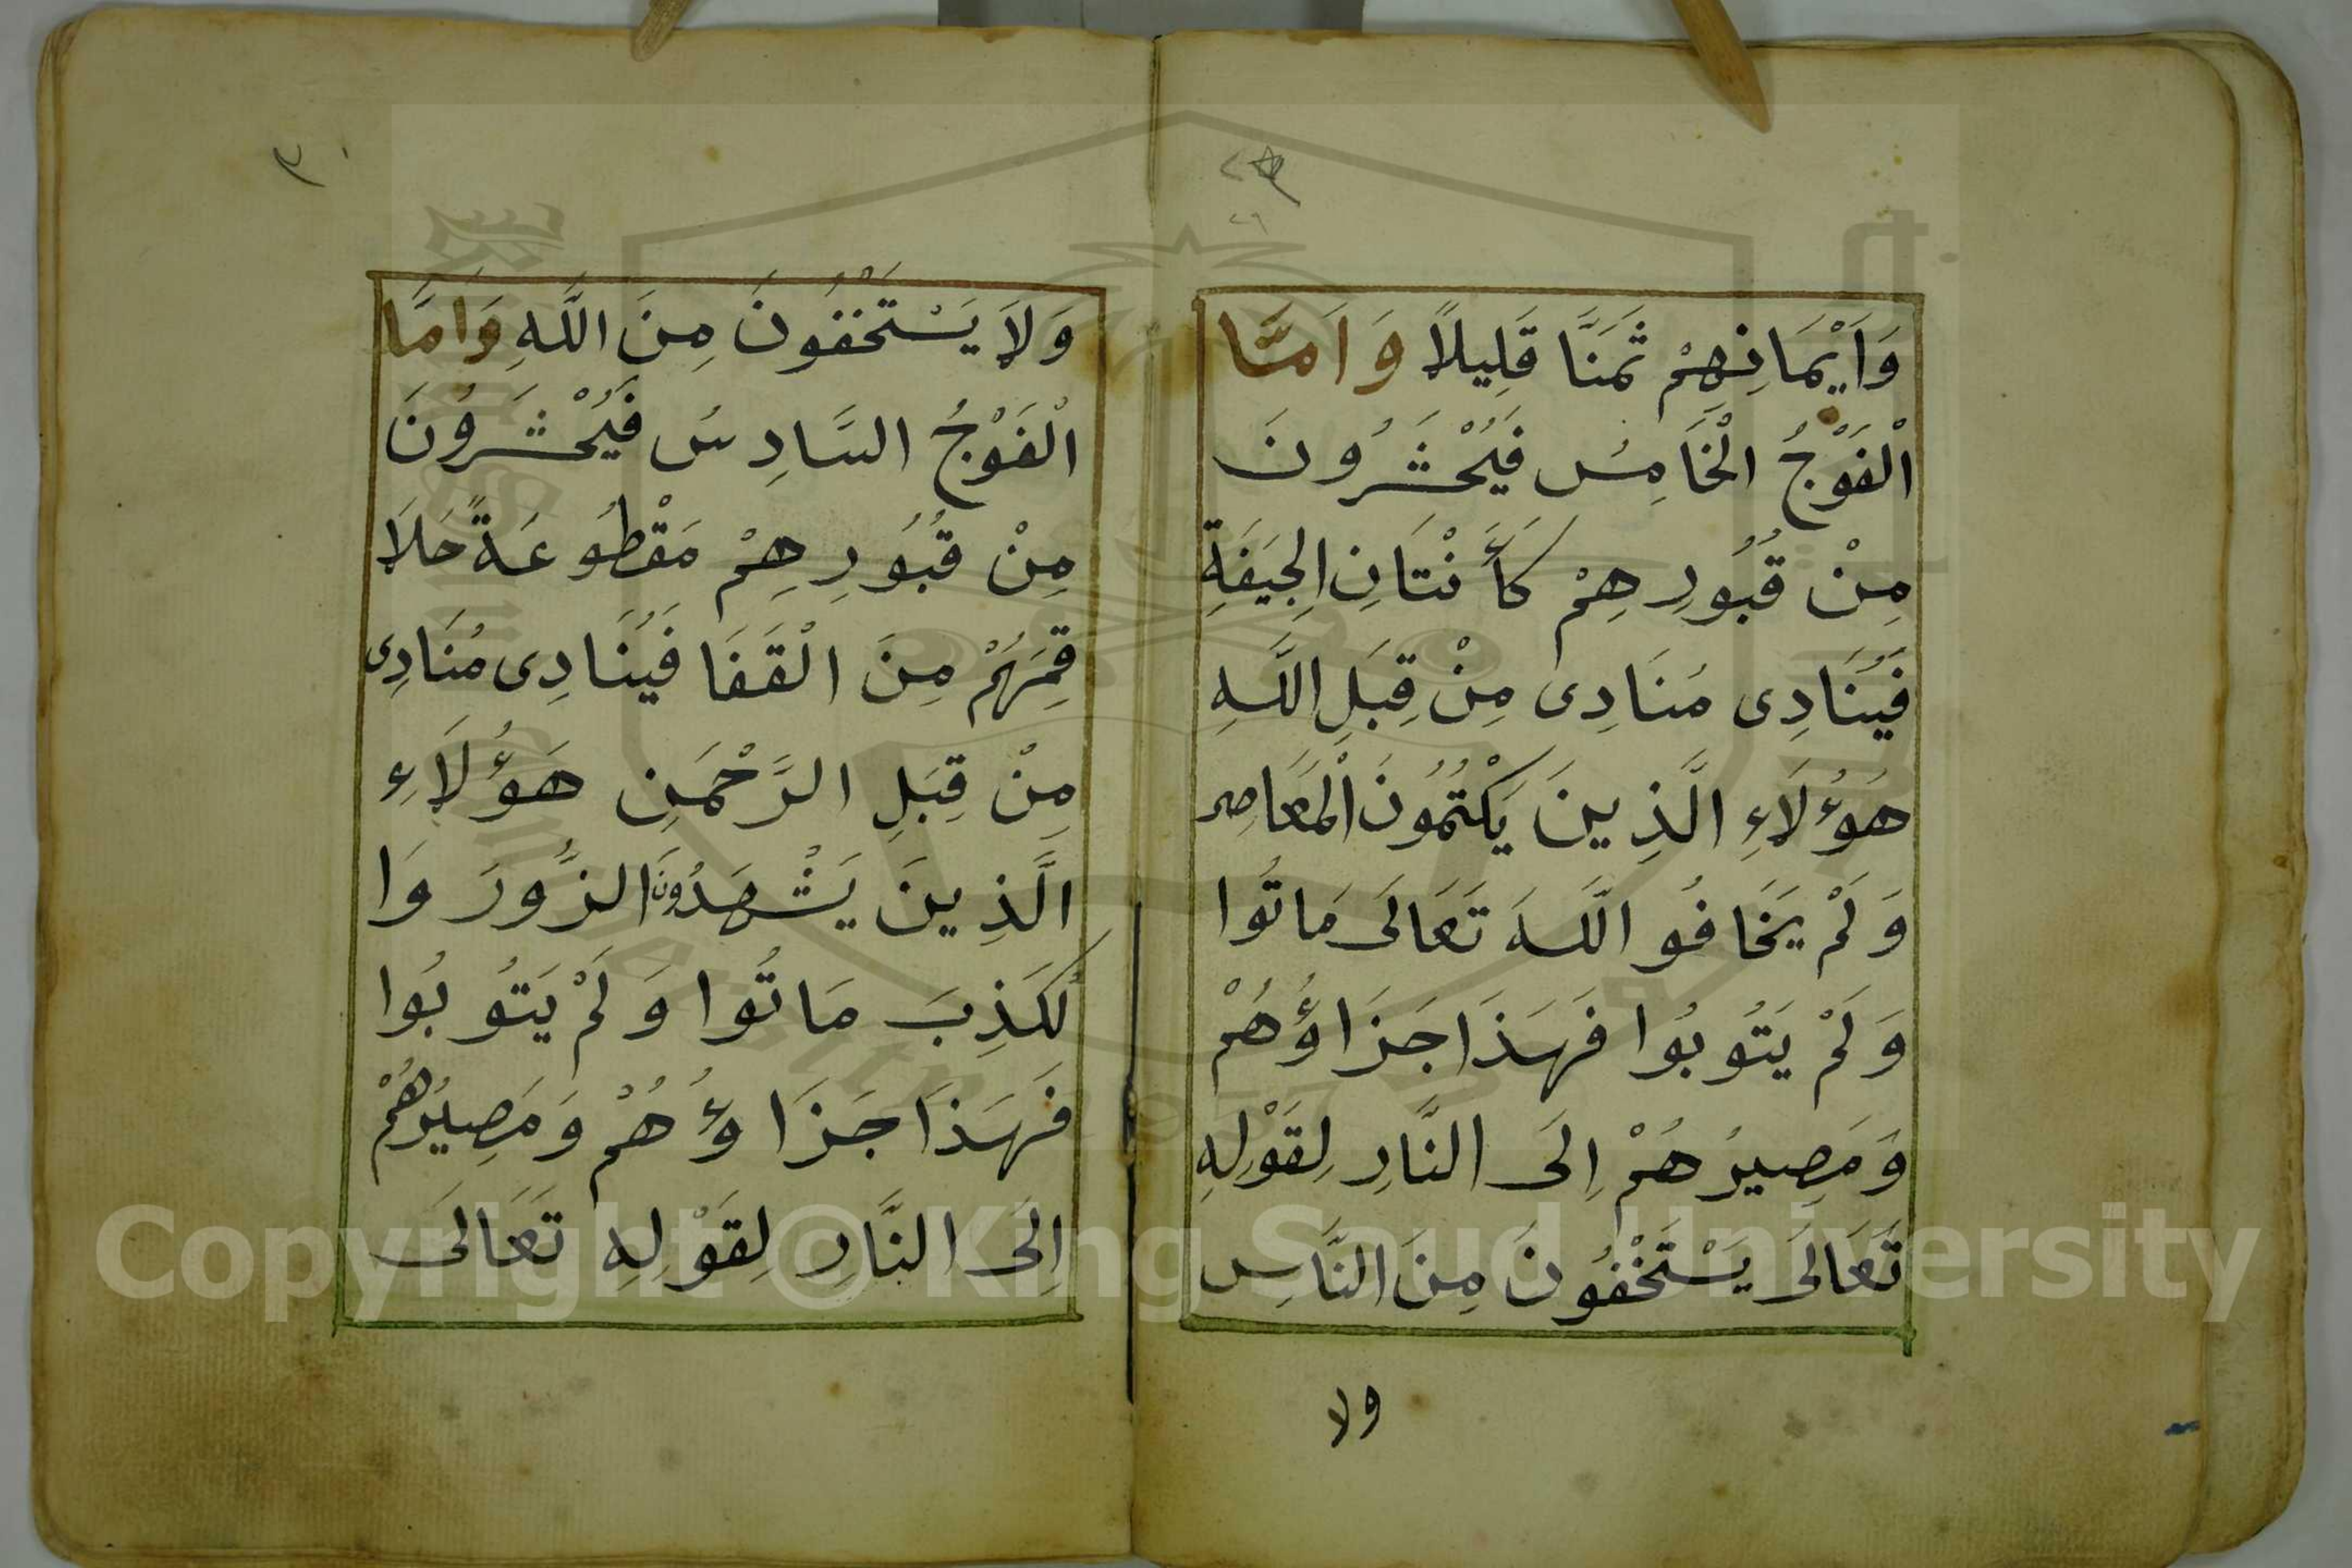 وَاَيْمَانِهِمْ ثَمَنًا قَلِيلاً وَاَمَّا
الْفَوْجُ الْخَامِسُ فَيُحْشَرُونَ
مِنْ قُبُورِهِمْ كَأَنْتَانِ الْجِيَفَةِ
فَيُنَادِى مُنَادِى مِنْ قِبَلِ اللَّهِ
هَؤُلَاءِ الَّذِينَ يَكْتُمُونَ الْمَعَاصِى
وَلَمْ يَخَافُو اللَّهَ تَعَالَى مَاتُوا
وَلَمْ يَتُوبُوا فَهَذَا جَزَاؤُهُمْ
وَمَصِيرُهُمْ اِلَى النَّارِ لِقَوْلِهِ
تَعَالَى يَسْتَخْفُونَ مِنَ النَّاسِ
ولا
٣٠
وَلاَ يَسْتَخْفُونَ مِنَ اللَّهِ وَاَمَّا
الْفَوْجُ السَّادِسُ فَيُحْشَرُونَ
مِنْ قُبُورِهِمْ مَقْطُوعَةً حَلاَ
قِمَهُمْ مِنَ الْقَفَا فَيُنَادِى مُنَادِى
مِنْ قِبَلِ الرَّحْمَنِ هَؤُلَاءِ
الَّذِينَ يَشْهَدُونَ الزُّورَ وَا
لْكَذِبَ مَاتُوا وَلَمْ يَتُوبُوا
فَهَذَا جَزَاؤُهُمْ وَمَصِيرُهُمْ
اِلَى النَّارِ لِقَوْلِهِ تَعَالَى
Copyright © King Saud University